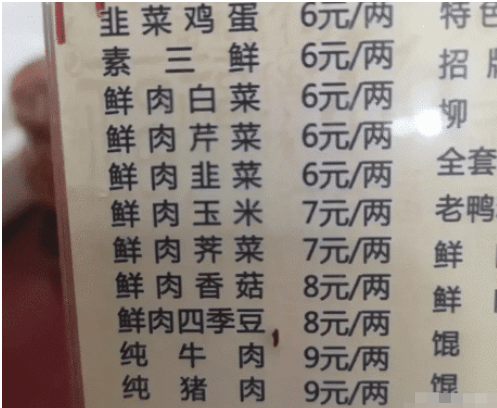 韭菜鸡蛋 6元/两 特色
素三鲜 6元/两 招牌
鲜肉白菜 6元/两 柳
鲜肉芹菜 6元/两 全套
鲜肉韭菜 6元/两 老鸭
鲜肉玉米 7元/两 鲜
鲜肉荠菜 7元/两 鲜
鲜肉香菇 8元/两 馄
鲜肉四季豆 8元/两 馄
纯牛肉 9元/两
纯猪肉 9元/两